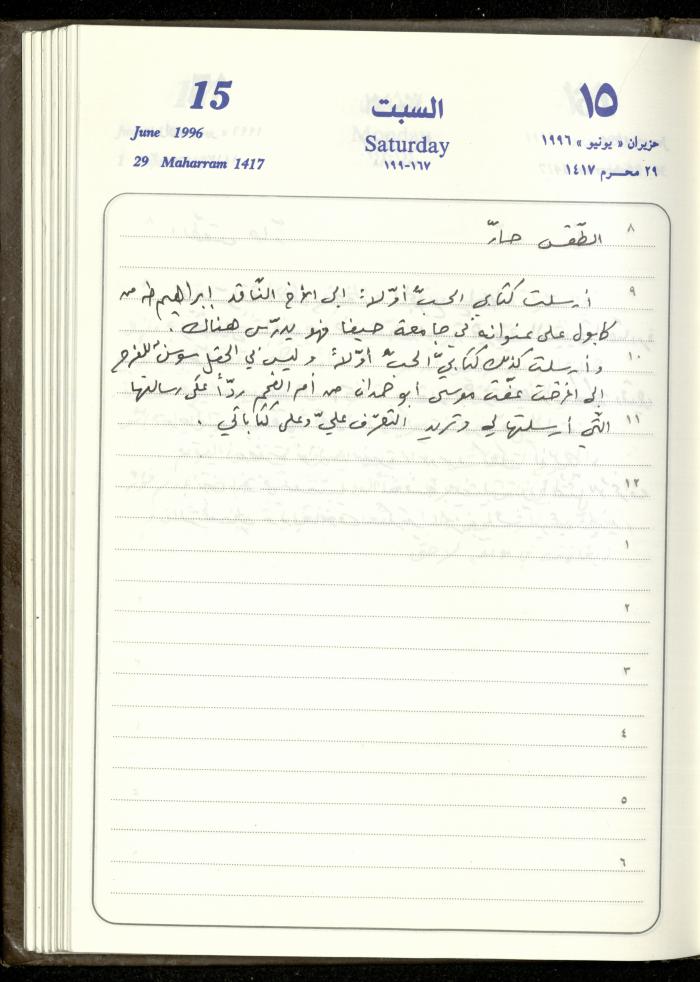 15
June 1996
29 Maharram 1417
السبت
Saturday
١٦٧-١٩٩
١٥
حزيران « يونيو » ١٩٩٦
٢٩ محرم ١٤١٧
٨ الطّقس حارّ
٩ أرسلت كتابي الحبّ أوّلاً: إلى الأخ النّاقد إبراهيم طه من
كابول على عنوانه في جامعة حيفا فهو يدرّس هناك.
١٠ وأرسلت كذلك كتابيّ الحبّ أوّلاً وليس في الحقل سوسن للفرح
إلى الأخت عفّت موسى أبو حمدان من أم الفحم ردّاً على رسالتها
١١ الّتي أرسلتها لي وتريد التعرّف عليّ وعلى كتاباتي .
١٢
١
٢
٣
٤
٥
٦